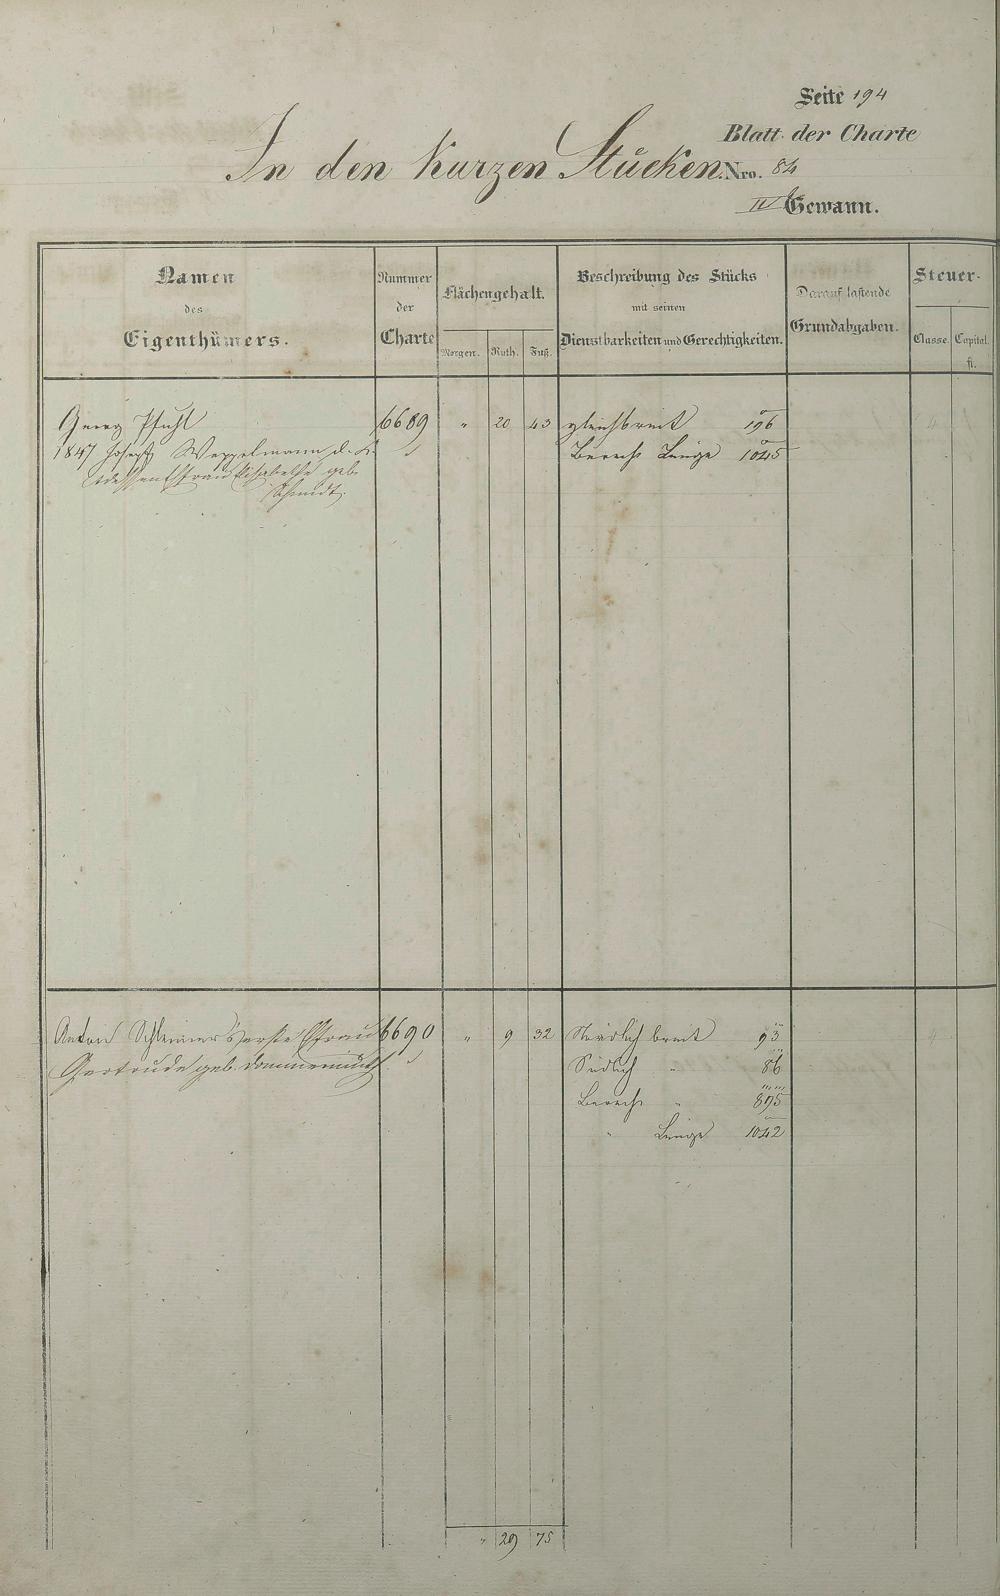 Seite 194
Blatt der Charte
In den kurzen Stücken. Nro. 84
IV Gewann.
Namen
des
Eigenthümers.
Nummer
der
Charte
Flächengehalt.
Morgen. Ruth. Fuß.
Beschreibung des Stücks
mit seinen
Dienstbarkeiten und Gerechtigkeiten.
Darauf lastende
Grundabgaben.
Steuer-
Classe. Capital.
fl.
Georg Pfuhl 6689 „ 20 43 gleichbreit 196
1847 Joseph Weppelmann d. Berech Länge 1045
Ehefrau Elisabetha geb.
Schmidt.
Anton Schleimer's erste Ehefrau 6690 „ 9 32 Nördlich breit 93
Gertrude geb. Dommermuth Südlich „ 86
Berech „ 895
„ Länge 1042
„ 29 75